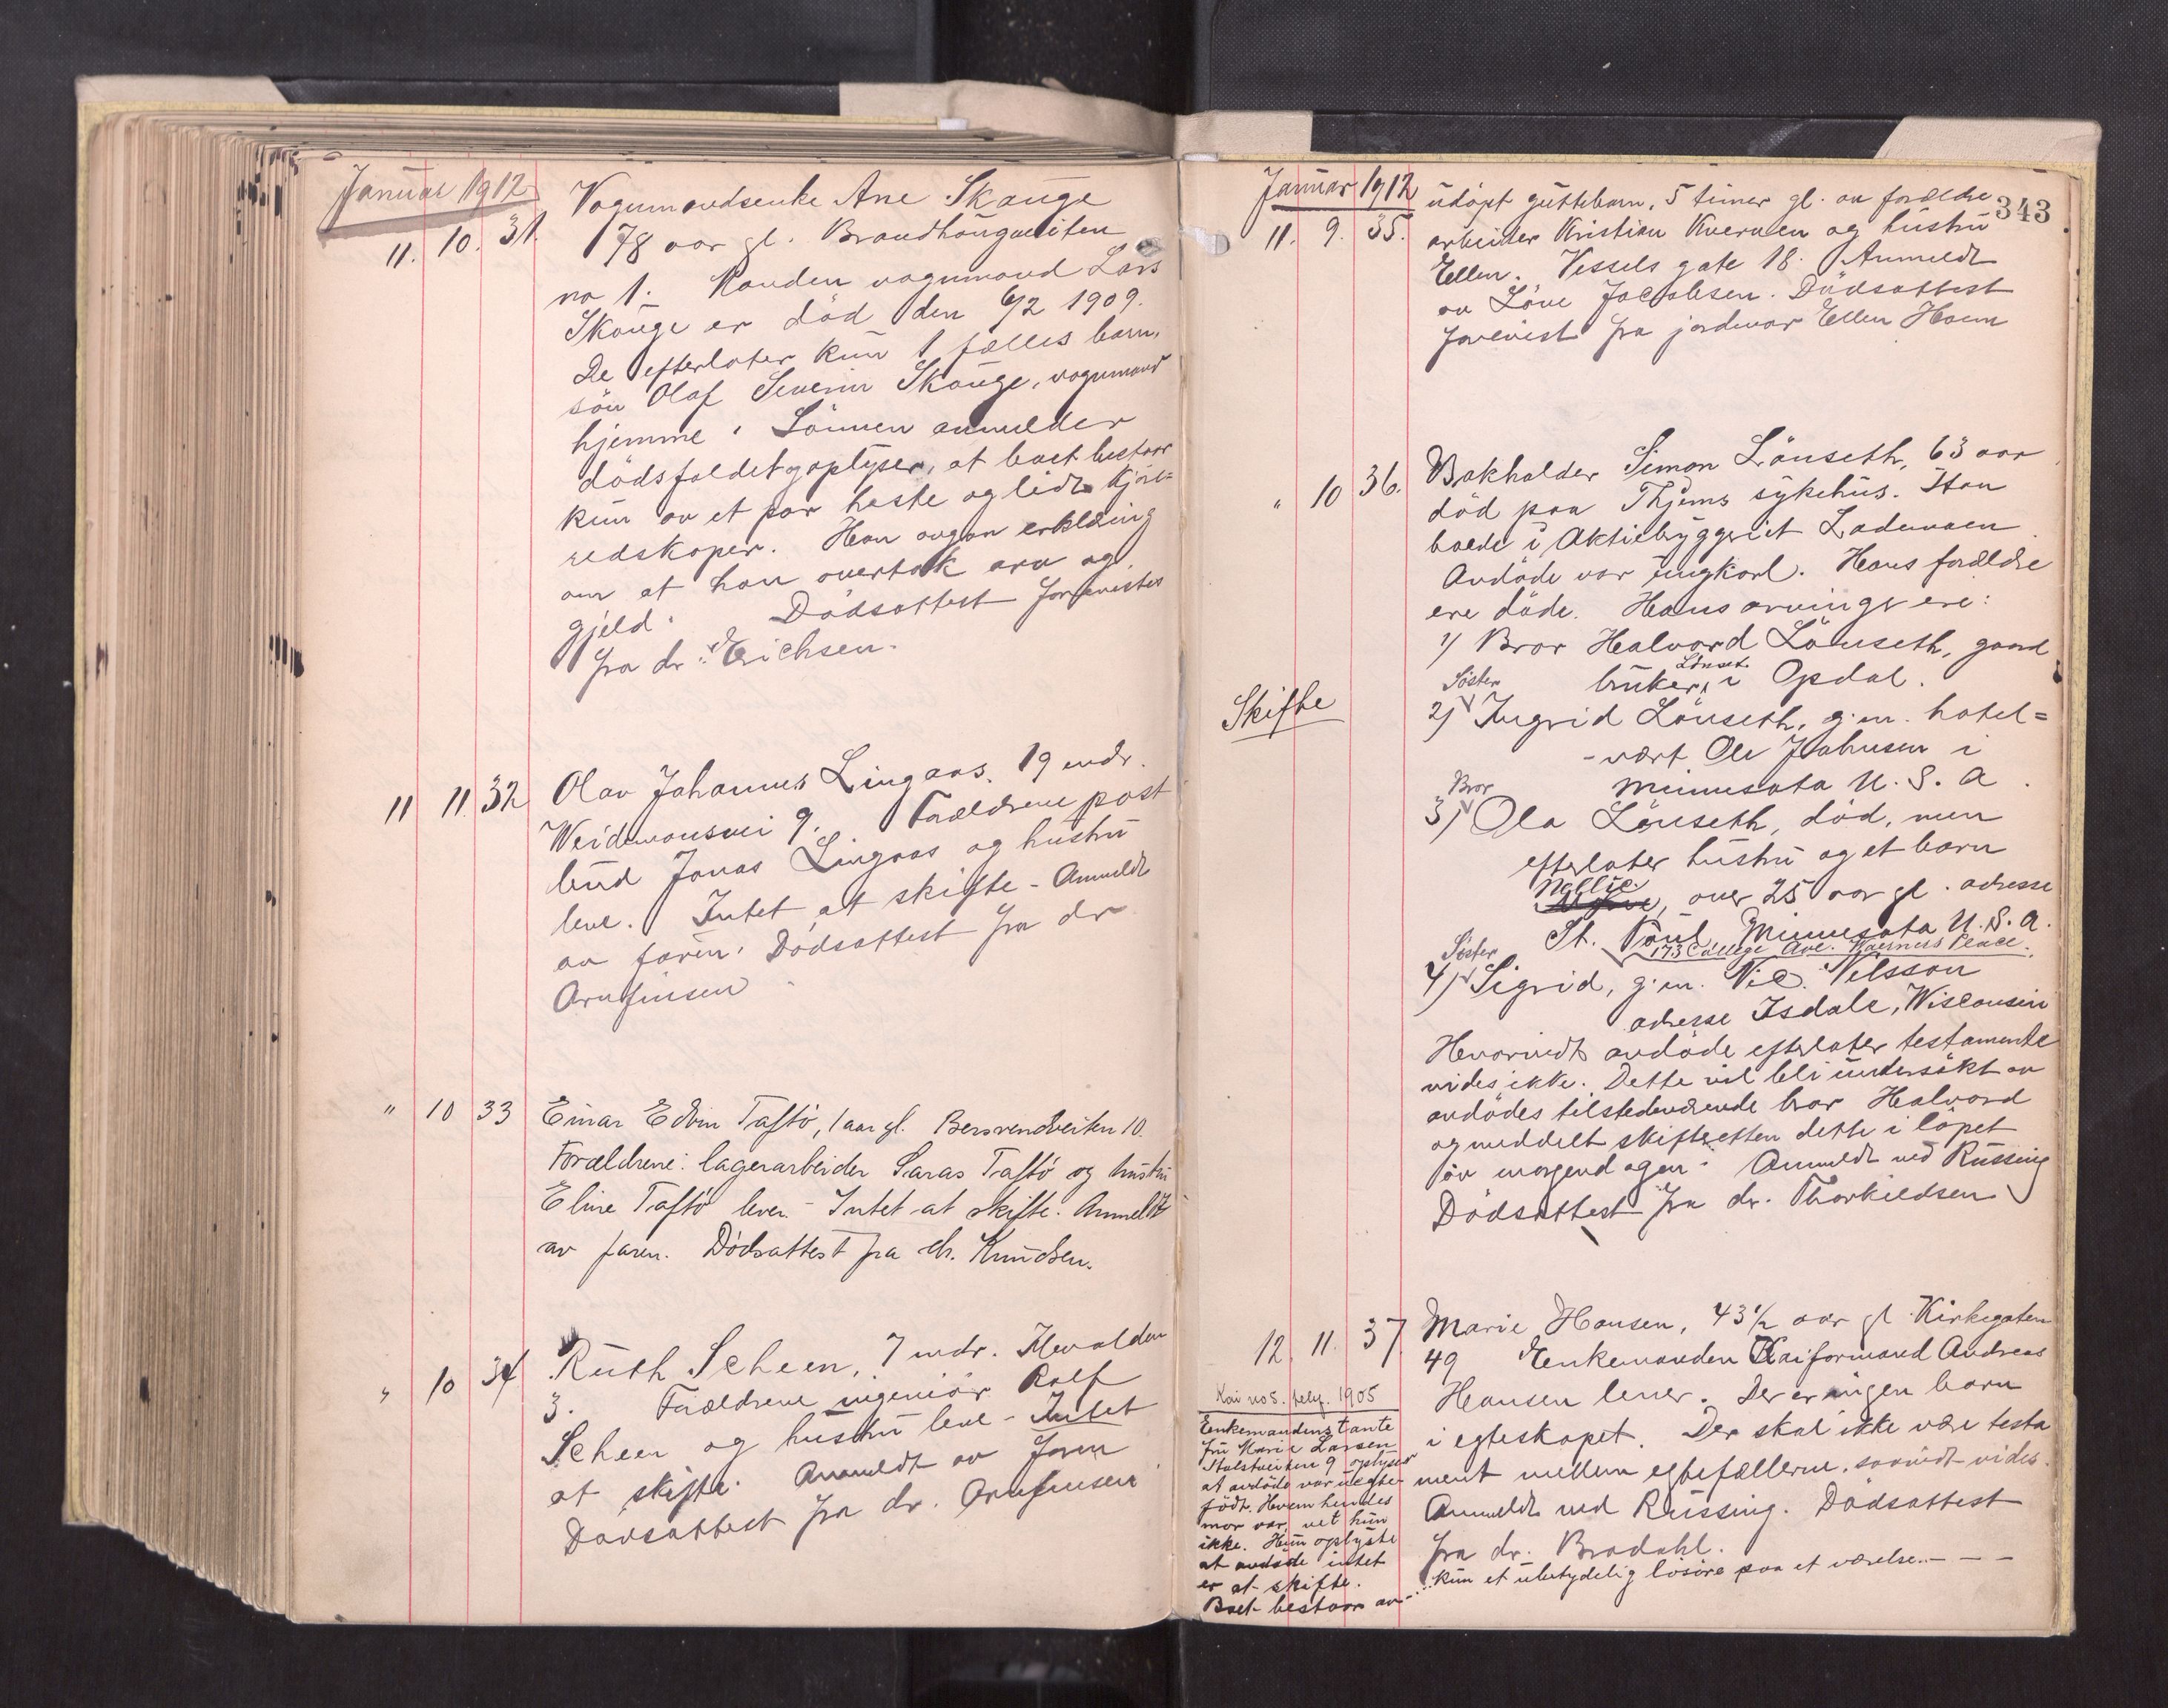 Januar 1912
11. 10. 31. Vognmandsenke Ane Skauge
78 aar gl. Brandhaugveiten
no 1. Manden vognmand Lars
Skauge er död den 6/2 1909.
De efterlater kun 1 fælles barn,
sön Olaf Severin Skauge, vognmand
hjemme. Sönnen anmelder
dödsfaldet og oplyser, at boet bestaar
kun av et par heste og lidt kjöre=
redskaper. Han avgav erklæring
om at han overtok arv og
gjeld. Dödsattest forevistes
fra dr. Erichsen.
11 11. 32 Olav Johannes Lingaas. 19 mdr.
Weidemansvei 9. Forældrene post
bud Jonas Lingaas og hustru
leve. Intet at skifte - Anmeldt
av faren. Dödsattest fra dr
Arnfinsen
" 10 33 Einar Edvin Taftö, 1 aar gl. Bersvendveiten 10.
Forældrene: lagerarbeider Saras Taftö og hustru
Eline Taftö lever. - Intet at skifte. Anmeldt
av faren. Dödsattest fra dr. Knudsen.
" 10 34 Ruth Scheen, 7 mdr. Ilevolden
3. Forældrene ingeniör Rolf
Scheen og hustru leve - Intet
at skifte. Anmeldt av faren
Dödsattest fra dr. Arnfinsen
343
Januar 1912
11. 9. 35. udöpt guttebarn, 5 timer gl. av forældre
arbeider Kristian Kvernen og hustru
Ellen. Vessels gate 18. Anmeldt
av Löve Jacobsen. Dödsattest
forevist fra jordmor Ellen Hoem
" 10 36. Bokholder Simon Lönseth, 63 aar
död paa Thjems sykehus. Han
boede i Aktiebryggeriet Lademoen
Avdöde var ungkarl. Hans forældre
ere döde. Hans arvinger ere:
1) Bror Halvord Lönseth, gaard
bruker, Lönset i Opdal.
Skifte
Söster
2) Ingrid Lönseth, g.m. hotel=
-vært Ole Johnsen i
Minnesota U. S. A.
Bror
3) Ola Lönseth, död, men
efterlater hustru og et barn
Nellie, over 25 aar gl. adresse
St. Paul Minnesota U. S. A.
173 College Ave. Place.
Söster
4) Sigrid, g.m. Nic. Nilsson
adresse Isdale, Wisconsin
Hvorvidt avdöde efterlater testamente
vides ikke. Dette vil bli undersökt av
avdödes tilstedeværende bror Halvord
og meddelt skifteretten dette i löpet
av morgendagen. Anmeldt ved Russing
Dödsattest fra dr. Thorkildsen
12. 11. 37. Marie Hansen, 43 1/2 aar gl. Kirkegaten
49 Enkemanden Kaiformand Andreas
Hansen lever. Der er ingen barn
i egteskapet. Der skal ikke være testa
ment mellem egtefællerne, saavidt vides.
Anmeldt ved Russing. Dödsattest
fra dr. Bradahl.
Kai no 5. 1905
Enkemandens tante
fru Marie Larsen
9 oplyser
at avdöde var uegte-
födt. Hvem hendes
mor var, vet hun
ikke. Hun oplyste
at avdöde intet
er at skifte.
Boet bestaar av
kun et ubetydelig lösöre paa et værelse. - - -